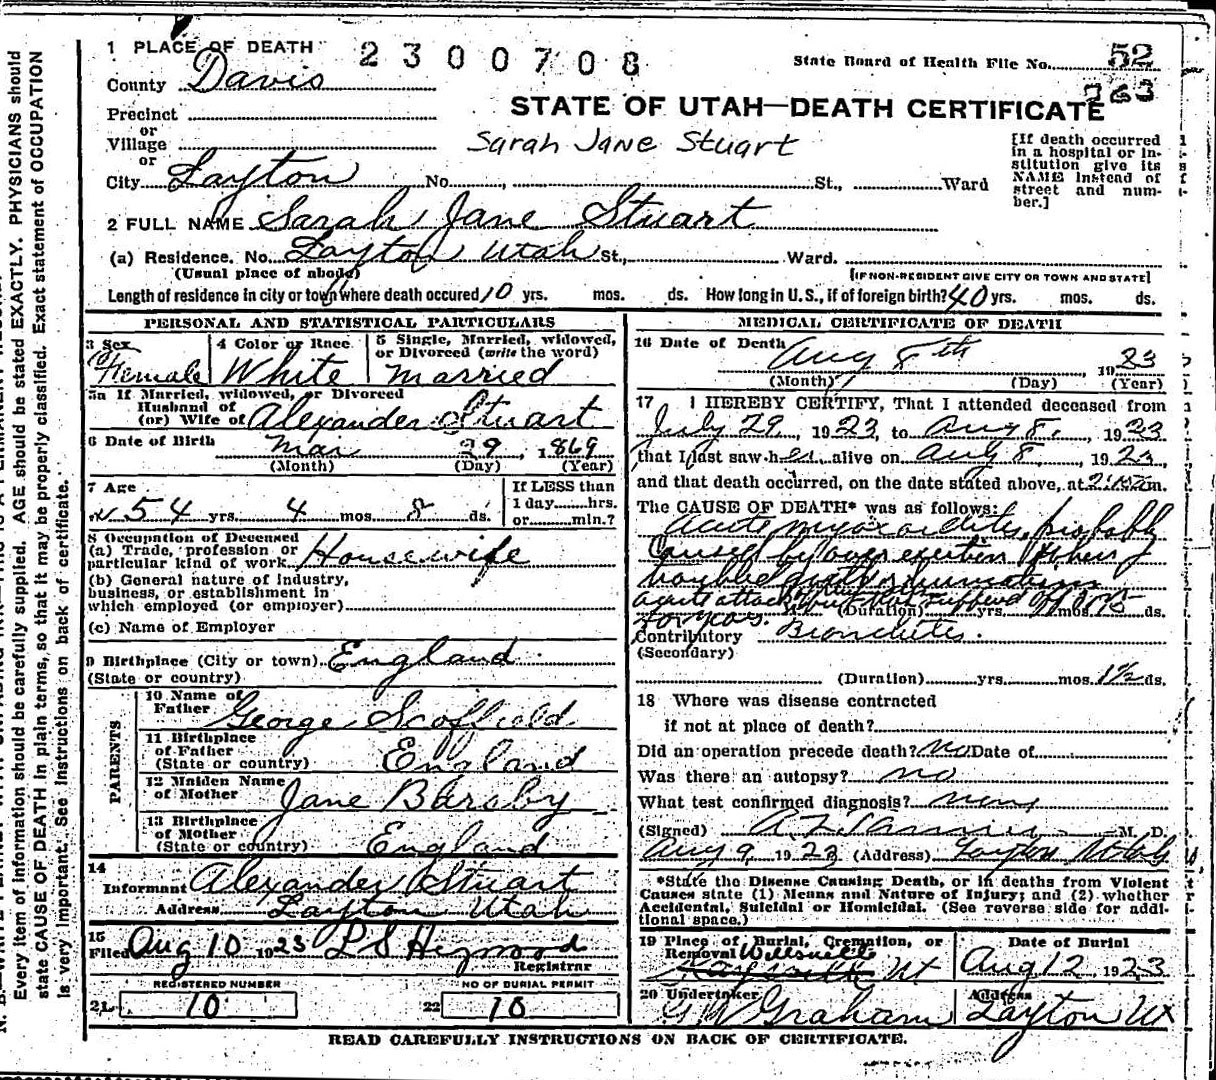 1 PLACE OF DEATH 2300708 State Board of Health File No. 52
County Davis 263
STATE OF UTAH—DEATH CERTIFICATE
Precinct
or
Village Sarah Jane Stuart
or
City Layton No. , St., Ward
[If death occurred in a hospital or in-
stitution give its NAME instead of street and num-
ber.]
2 FULL NAME Sarah Jane Stuart
(a) Residence. No. Layton Utah St., Ward.
(Usual place of abode) [IF NON-RESIDENT GIVE CITY OR TOWN AND STATE]
Length of residence in city or town where death occured 10 yrs. mos. ds. How long in U. S., if of foreign birth? 40 yrs. mos. ds.
PERSONAL AND STATISTICAL PARTICULARS
3 Sex 4 Color or Race 5 Single, Married, widowed,
or Divorced (write the word)
Female White Married
5a If Married, widowed, or Divorced
Husband of
(or) Wife of Alexander Stuart
6 Date of Birth Mar 29, 1869
(Month) (Day) (Year)
7 Age If LESS than
1 day hrs.
54 yrs. 4 mos. 8 ds. or min.?
8 Occupation of Deceased
(a) Trade, profession or
particular kind of work Housewife
(b) General nature of industry,
business, or establishment in
which employed (or employer)
(c) Name of Employer
9 Birthplace (City or town) England
(State or country)
PARENTS
10 Name of
Father George Scoffield
11 Birthplace
of Father
(State or country) England
12 Maiden Name
of Mother Jane Barsby
13 Birthplace
of Mother
(State or country) England
14
Informant Alexander Stuart
Address Layton Utah
15
Filed Aug 10 1923 L S Heywood
Registrar
REGISTERED NUMBER NO OF BURIAL PERMIT
21 10 22 10
MEDICAL CERTIFICATE OF DEATH
16 Date of Death Aug 8th, 1923
(Month) (Day) (Year)
17 I HEREBY CERTIFY, That I attended deceased from
July 29, 1923, to Aug 8, 1923
that I last saw her alive on Aug 8, 1923,
and that death occurred, on the date stated above, at m.
The CAUSE OF DEATH* was as follows:
Acute myocarditis, probably
Caused by over exertion
trouble
acute attack suffered
for yrs. (Duration) yrs. mos. ds.
Contributory Bronchites.
(Secondary)
(Duration) yrs. mos. 1½ ds.
18 Where was disease contracted
if not at place of death?
Did an operation precede death? no Date of
Was there an autopsy? no
What test confirmed diagnosis?
(Signed) M. D.
Aug 9, 1923 (Address) Layton Utah
*State the Disease Causing Death, or in deaths from Violent
Causes state (1) Means and Nature of Injury; and (2) whether
Accidental, Suicidal or Homicidal. (See reverse side for addi-
tional space.)
19 Place of Burial, Cremation, or Date of Burial
Removal Wellsville
Kaysville Ut Aug 12 1923
20 Undertaker Address
G W Graham Layton Ut
READ CAREFULLY INSTRUCTIONS ON BACK OF CERTIFICATE.
Every item of information should be carefully supplied. AGE should be stated EXACTLY. PHYSICIANS should
state CAUSE OF DEATH in plain terms, so that it may be properly classified. Exact statement of OCCUPATION
is very important. See instructions on back of certificate.